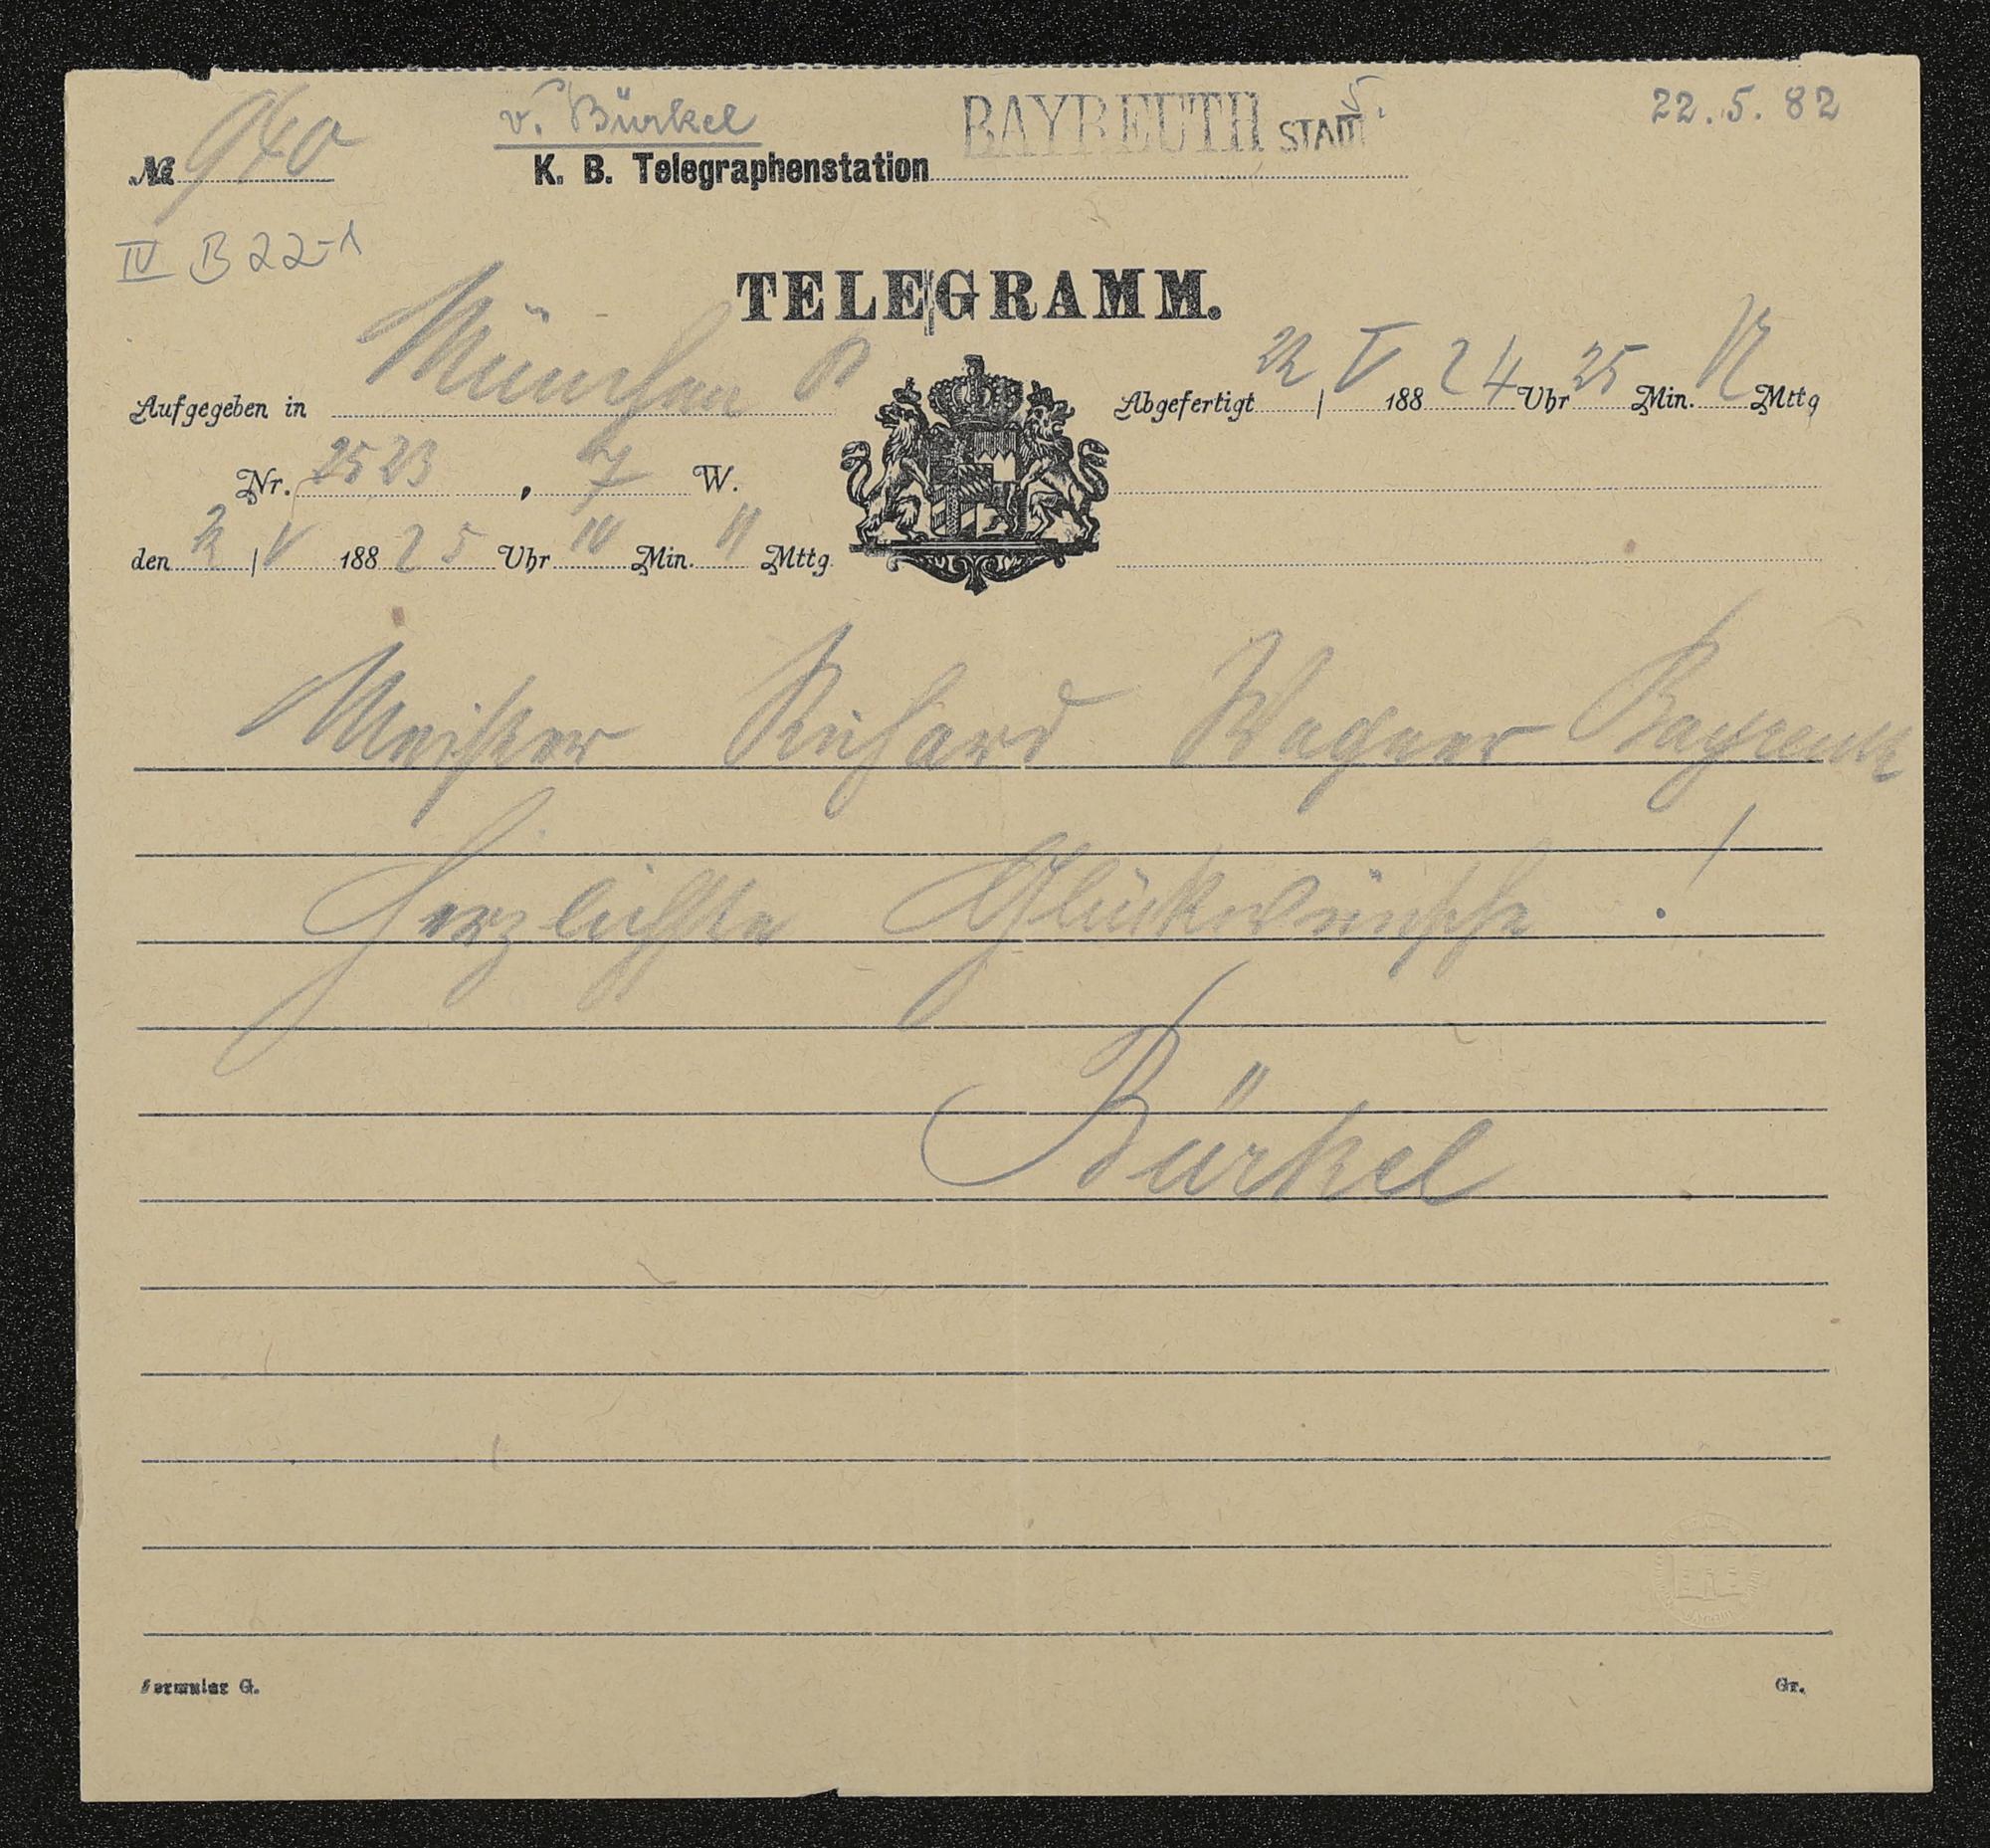 № 940 v. Bürkel BAYREUTH STADT 22.5.82
K. B. Telegraphenstation
IV B 22-1
TELEGRAMM.
Aufgegeben in München Abgefertigt 22 | V 188 2 4 Uhr 25 Min. N Mttg
Nr. 2523, 7 W.
den 22 | V 188 2 5 Uhr Min. Mttg
Meister Richard Wagner Bayreuth
Herzlichste Glückwünsche !
Bürkel
Formular G. Gr.